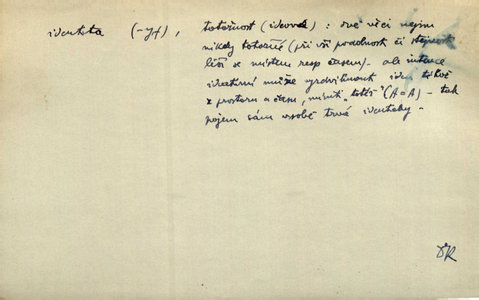 identita (-y f), totožnost (ideová): dvě věci nejsou
nikdy totožné (při vší podobnosti či stejnosti
liší se místem resp časem) - ale intence
ideativní může vyzdvihnout
z prostoru a času, mínit "totéž" (A=A) - tak
pojem sám v sobě trvá identicky -
ŽR